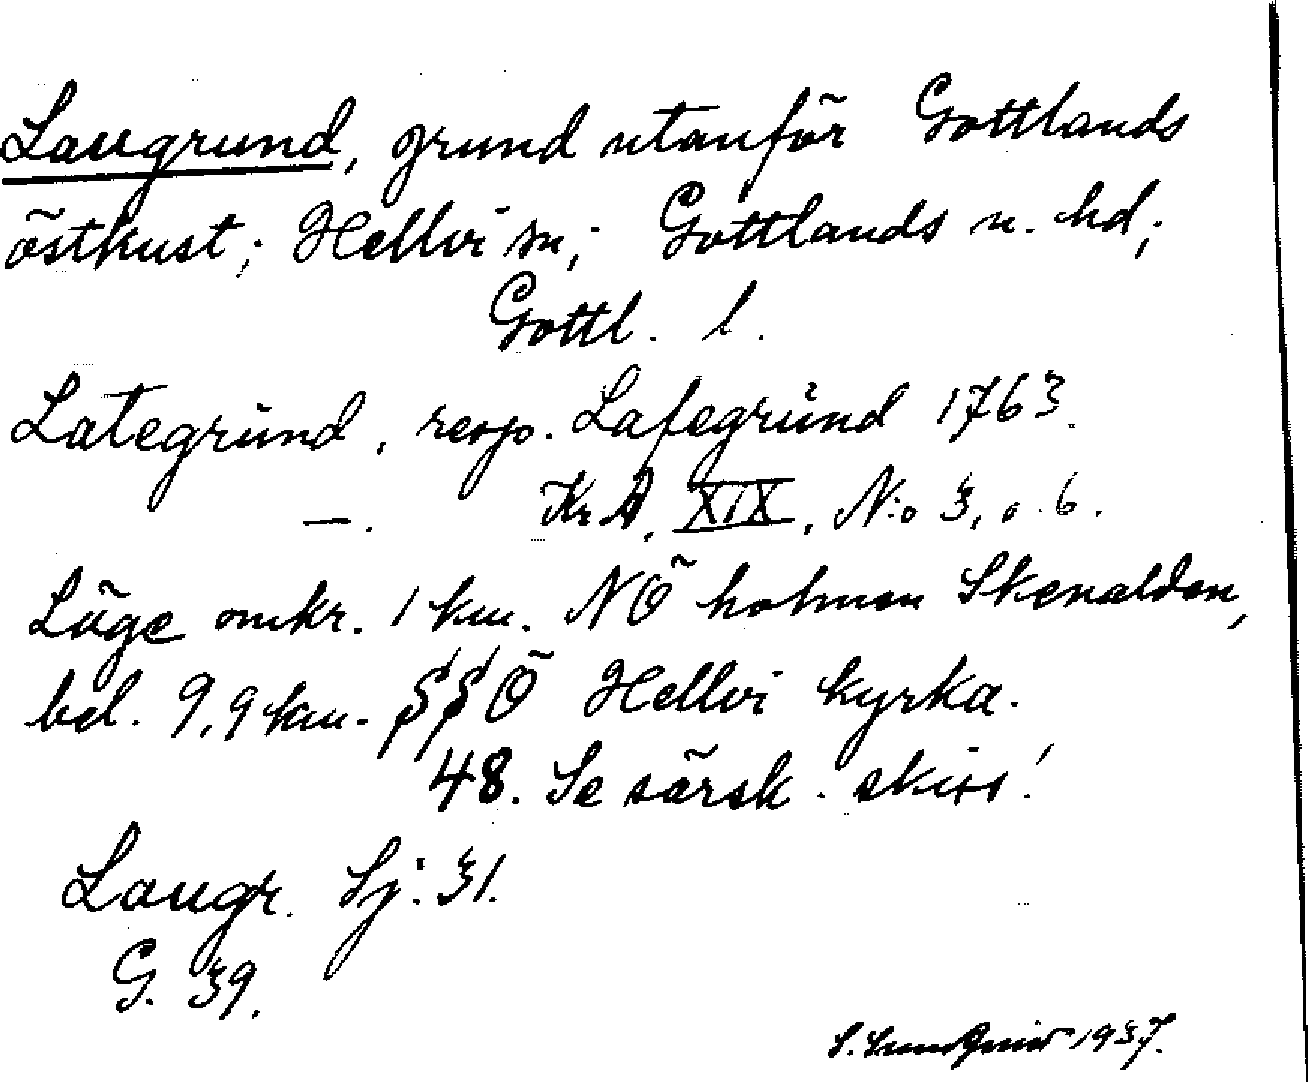 Laugrund, grund utanför Gottlands
östkust; Hellvi sn; Gottlands n. hd;
Gottl. l.
Lategrund, resp. Lafegrund 1763.
—. Kr A. XIX, N:o 3, o. 6.
Läge omkr. 1 km. NÖ holmen Skenalden,
bel. 9,9 km. SSÖ Hellvi kyrka.
48. Se särsk. skiss!
Laugr. Sj. 31.
G. 39.
S. Lundqvist 1937.